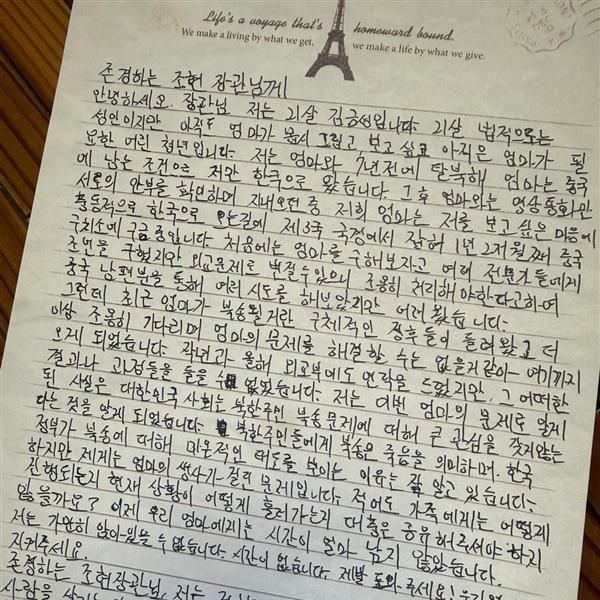 Life's a voyage that's homeward bound.
We make a living by what we get, we make a life by what we give.
존경하는 조현 장관님께
안녕하세요. 장관님 저는 21살 김금성입니다. 21살 법적으로는
성인이지만 아직도 엄마가 몹시 그립고 보고 싶고 아직은 엄마가 필
요한 어린 청년입니다. 저는 엄마와 7년전에 탈북해 엄마는 중국
에 남는 조건으로 저만 한국으로 왔습니다. 그 후 엄마와는 영상통화만
서로의 안부를 확인하며 지내오던 중 저희 엄마는 저를 보고 싶은 마음에
충동적으로 한국으로 오는길에 제3국 국경에서 잡혀 1년 2개월째 중국
구치소에 구금중입니다. 처음에는 엄마를 구해보자고 여러 전문가들에게
조언을 구했지만 외교문제로 번질수있으니 조용히 처리해야한다고하여
중국 남편분을 통해 여러 시도를 해보았지만 어려웠습니다.
그런데 최근 엄마가 북송될거란 구체적인 정후들이 들려왔고 더
이상 조용히 기다리며 엄마의 문제를 해결할 수는 없을거같아 여기까지
오게 되었습니다. 작년과 올해 외교부에도 연락을 드렸지만, 그 어떠한
결과나 과정들을 들을 수 없었습니다. 저는 이번 엄마의 문제로 알게
된 사실은 대한민국 사회는 북한주민 북송문제에 대해 큰 관심을 갖지않는
다는 것을 알게 되었습니다. 북한주민들에게 북송은 죽음을 의미하며. 한국
정부가 북송에 대해 미온적인 태도를 보이는 이유는 잘 알고 있습니다.
하지만 저에게는 엄마의 생사가 걸린 문제입니다. 적어도 가족에게는 어떻게
진행되는지 현재 상황이 어떻게 흘러가는지 대충은 공유해주셔야 하지
않을까요? 이제 우리 엄마에게는 시간이 얼마 남지 않았습니다.
저는 가만히 앉아있을 수 없습니다. 시간이 없습니다. 제발 도와주세요!
지켜주세요.
존경하는 조현장관님. 저는
사람을